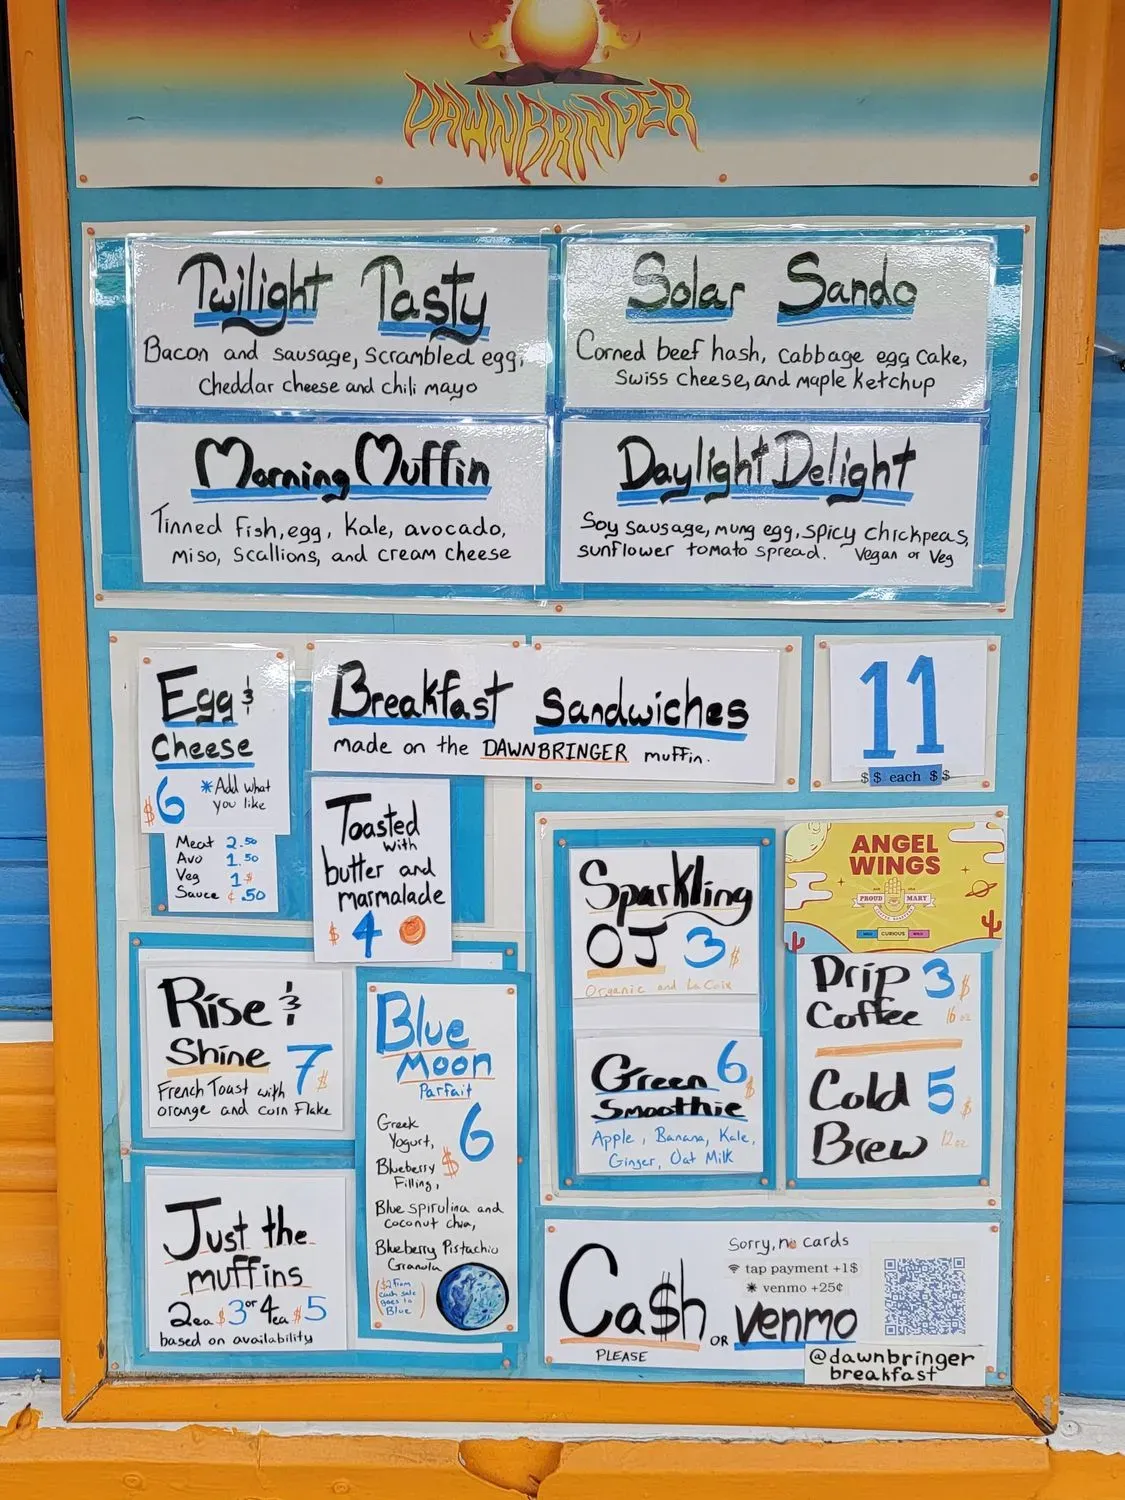 DAWNBRINGER
Twilight Tasty
Bacon and sausage, scrambled egg,
cheddar cheese and chili mayo
Solar Sando
Corned beef hash, cabbage egg cake,
Swiss cheese, and maple ketchup
Morning Muffin
Tinned fish, egg, kale, avocado,
miso, scallions, and cream cheese
Daylight Delight
Soy sausage, mung egg, spicy chickpeas,
sunflower tomato spread. Vegan or Veg
Egg &
cheese
$6 *Add what
you like
Meat 2.50
Avo 1.50
Veg 1$
Sauce ¢.50
Breakfast Sandwiches
made on the DAWNBRINGER muffin.
11
$$ each $$
Toasted
with
butter and
marmalade
$4
Sparkling
OJ 3$
Organic and La Croix
Green 6$
Smoothie
Apple, Banana, Kale,
Ginger, Oat Milk
ANGEL
WINGS
PROUD MARY
CURIOUS
Drip 3$
Coffee 16 oz
Cold 5$
Brew 12oz
Rise &
Shine 7$
French Toast with
orange and corn flake
Blue
Moon
Parfait
$6
Greek
Yogurt,
Blueberry
Filling,
Blue spirulina and
coconut chia,
Blueberry Pistachio
Granola
($2 from
each sale
goes to
Blue)
Just the
muffins
2ea $3 or 4ea $5
based on availability
Ca$h OR venmo
PLEASE
Sorry, no cards
tap payment +1$
* venmo +25¢
@dawnbringer
breakfast